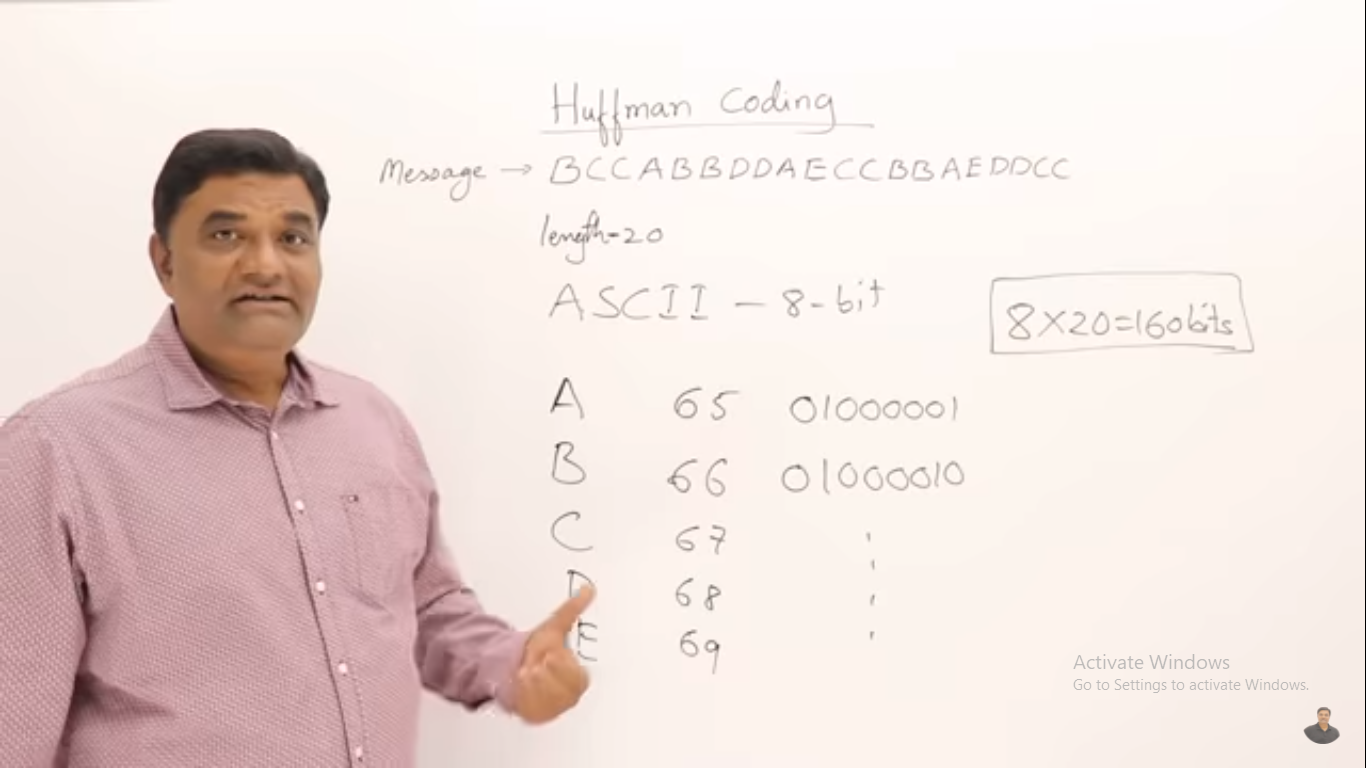 Huffman Coding
Message → BCCABBDDAECCBBAEDDCC
length=20
ASCII - 8-bit
8×20=160bits
A 65 01000001
B 66 01000010
C 67
D 68
E 69
Activate Windows
Go to Settings to activate Windows.